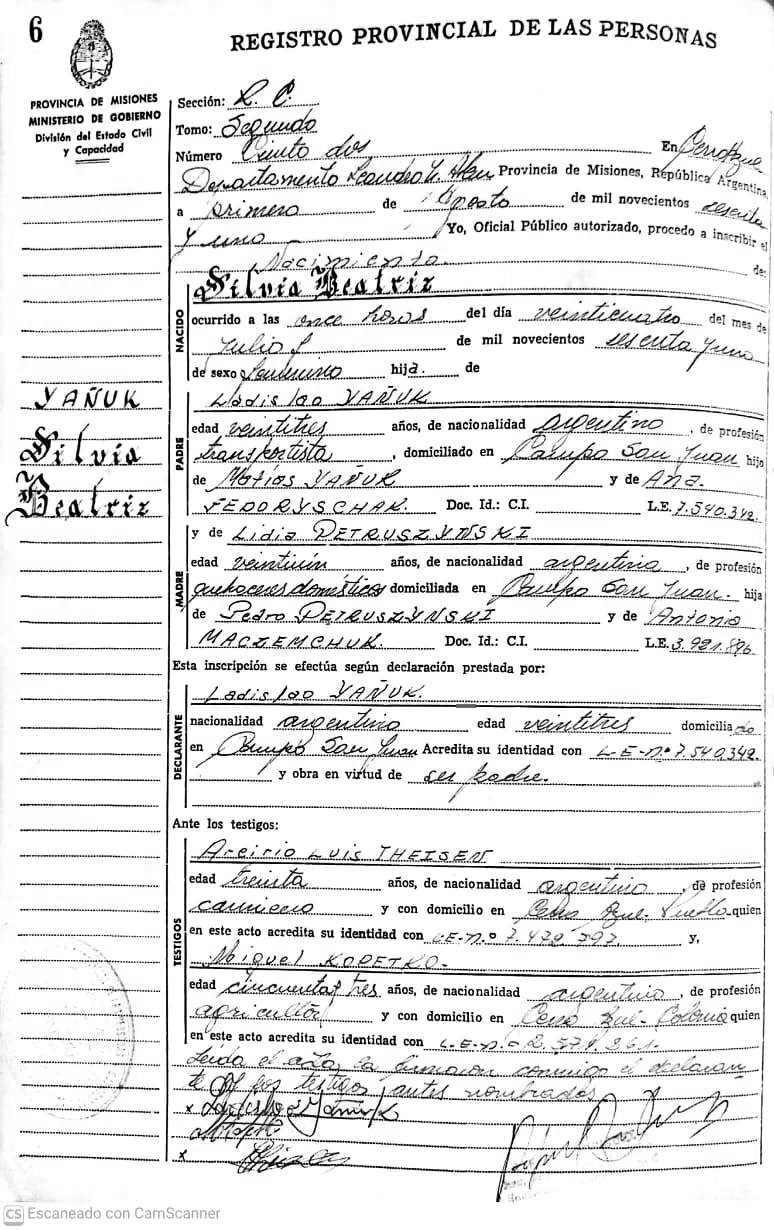 6
REGISTRO PROVINCIAL DE LAS PERSONAS
PROVINCIA DE MISIONES
MINISTERIO DE GOBIERNO
División del Estado Civil
y Capacidad
Sección: R. C.
Tomo: Segundo
Número Ciento dos En Cerro Azul
Departamento Leandro N. Alem Provincia de Misiones, República Argentina,
a primero de Agosto de mil novecientos sesenta
y uno Yo, Oficial Público autorizado, procedo a inscribir el
Nacimiento de:
Silvia Beatriz
NACIDO
ocurrido a las once horas del día veinticuatro del mes de
Julio de mil novecientos sesenta y uno
de sexo femenino hija de
YAÑUK
Silvia
Beatriz
Ladislao YAÑUK
PADRE
edad veintitres años, de nacionalidad argentino, de profesión
transportista, domiciliado en Campo San Juan hijo
de Matías YAÑUK y de Ana
FEDORYSCHAK. Doc. Id.: C.I. L.E. 7.540.342.
y de Lidia PETRUSZYNSKI
MADRE
edad veintiún años, de nacionalidad argentina, de profesión
quehaceres domésticos domiciliada en Campo San Juan. hija
de Pedro PETRUSZYNSKI y de Antonia
MACZEMCHUK. Doc. Id.: C.I. L.E. 3.921.896
Esta inscripción se efectúa según declaración prestada por:
Ladislao YAÑUK.
DECLARANTE
nacionalidad argentino edad veintitres domiciliado
en Campo San Juan Acredita su identidad con L-E-n.º 7.540.342.
y obra en virtud de ser padre.
Ante los testigos:
Arcirio LUIS THEISEN
TESTIGOS
edad treinta años, de nacionalidad argentino, de profesión
carnicero y con domicilio en Cerro Azul- Pueblo quien
en este acto acredita su identidad con L-E-n.º 7.479.397 y,
Miguel KOPETKO-
edad cincuenta y tres años, de nacionalidad argentino, de profesión
agricultor y con domicilio en Cerro Azul- Colonia quien
en este acto acredita su identidad con L-E-n.º 2.571.361.
Leída el acta, la firmaron conmigo el declaran-
te y los testigos antes nombrados.
x Ladislao Yañuk
x
CS Escaneado con CamScanner